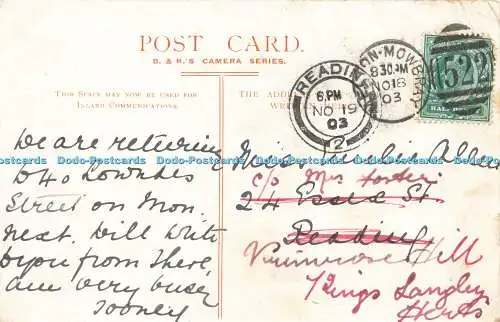 POST CARD.
B. & R'S CAMERA SERIES.
THIS SPACE MAY NOW BE USED FOR
INLAND COMMUNICATIONS.
THE ADDRESS
READING
6 PM
NO 19
03
2
ON-MOWBRAY
8 30 AM
NO 18
03
522
HALF
We are returning
to 40 Lowndes
Street on Mon.
next. Will write
to you from there,
am very busy
Dodo-Postcards Dodo-Postcards Dodo-Postcards Dodo-Postcards Dodo-Postcards Dodo-Postcards
Miss Allen
c/o Mrs
24 Essex St.
Reading
Primrose Hill
Kings Langley
Herts